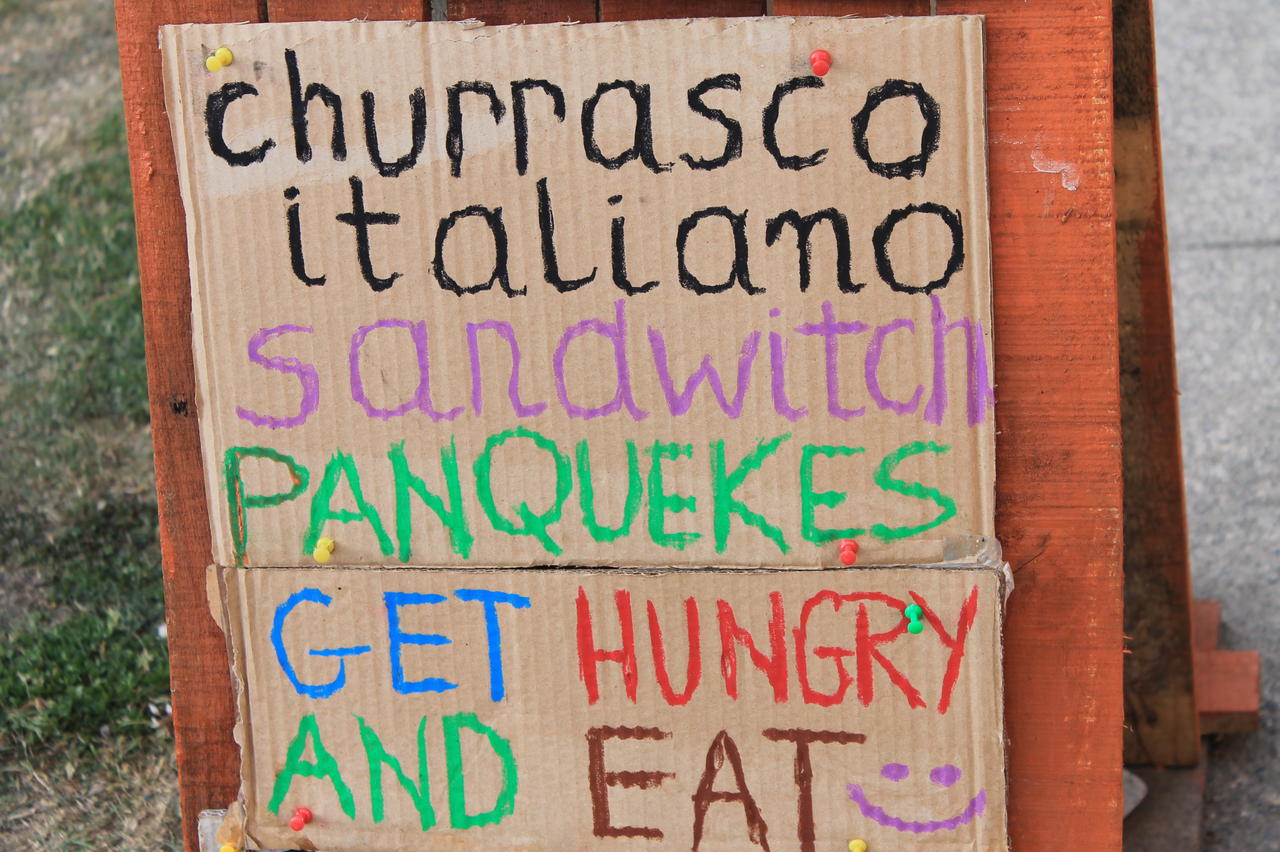 churrasco
italiano
sandwitch
PANQUEKES
GET HUNGRY
AND EAT